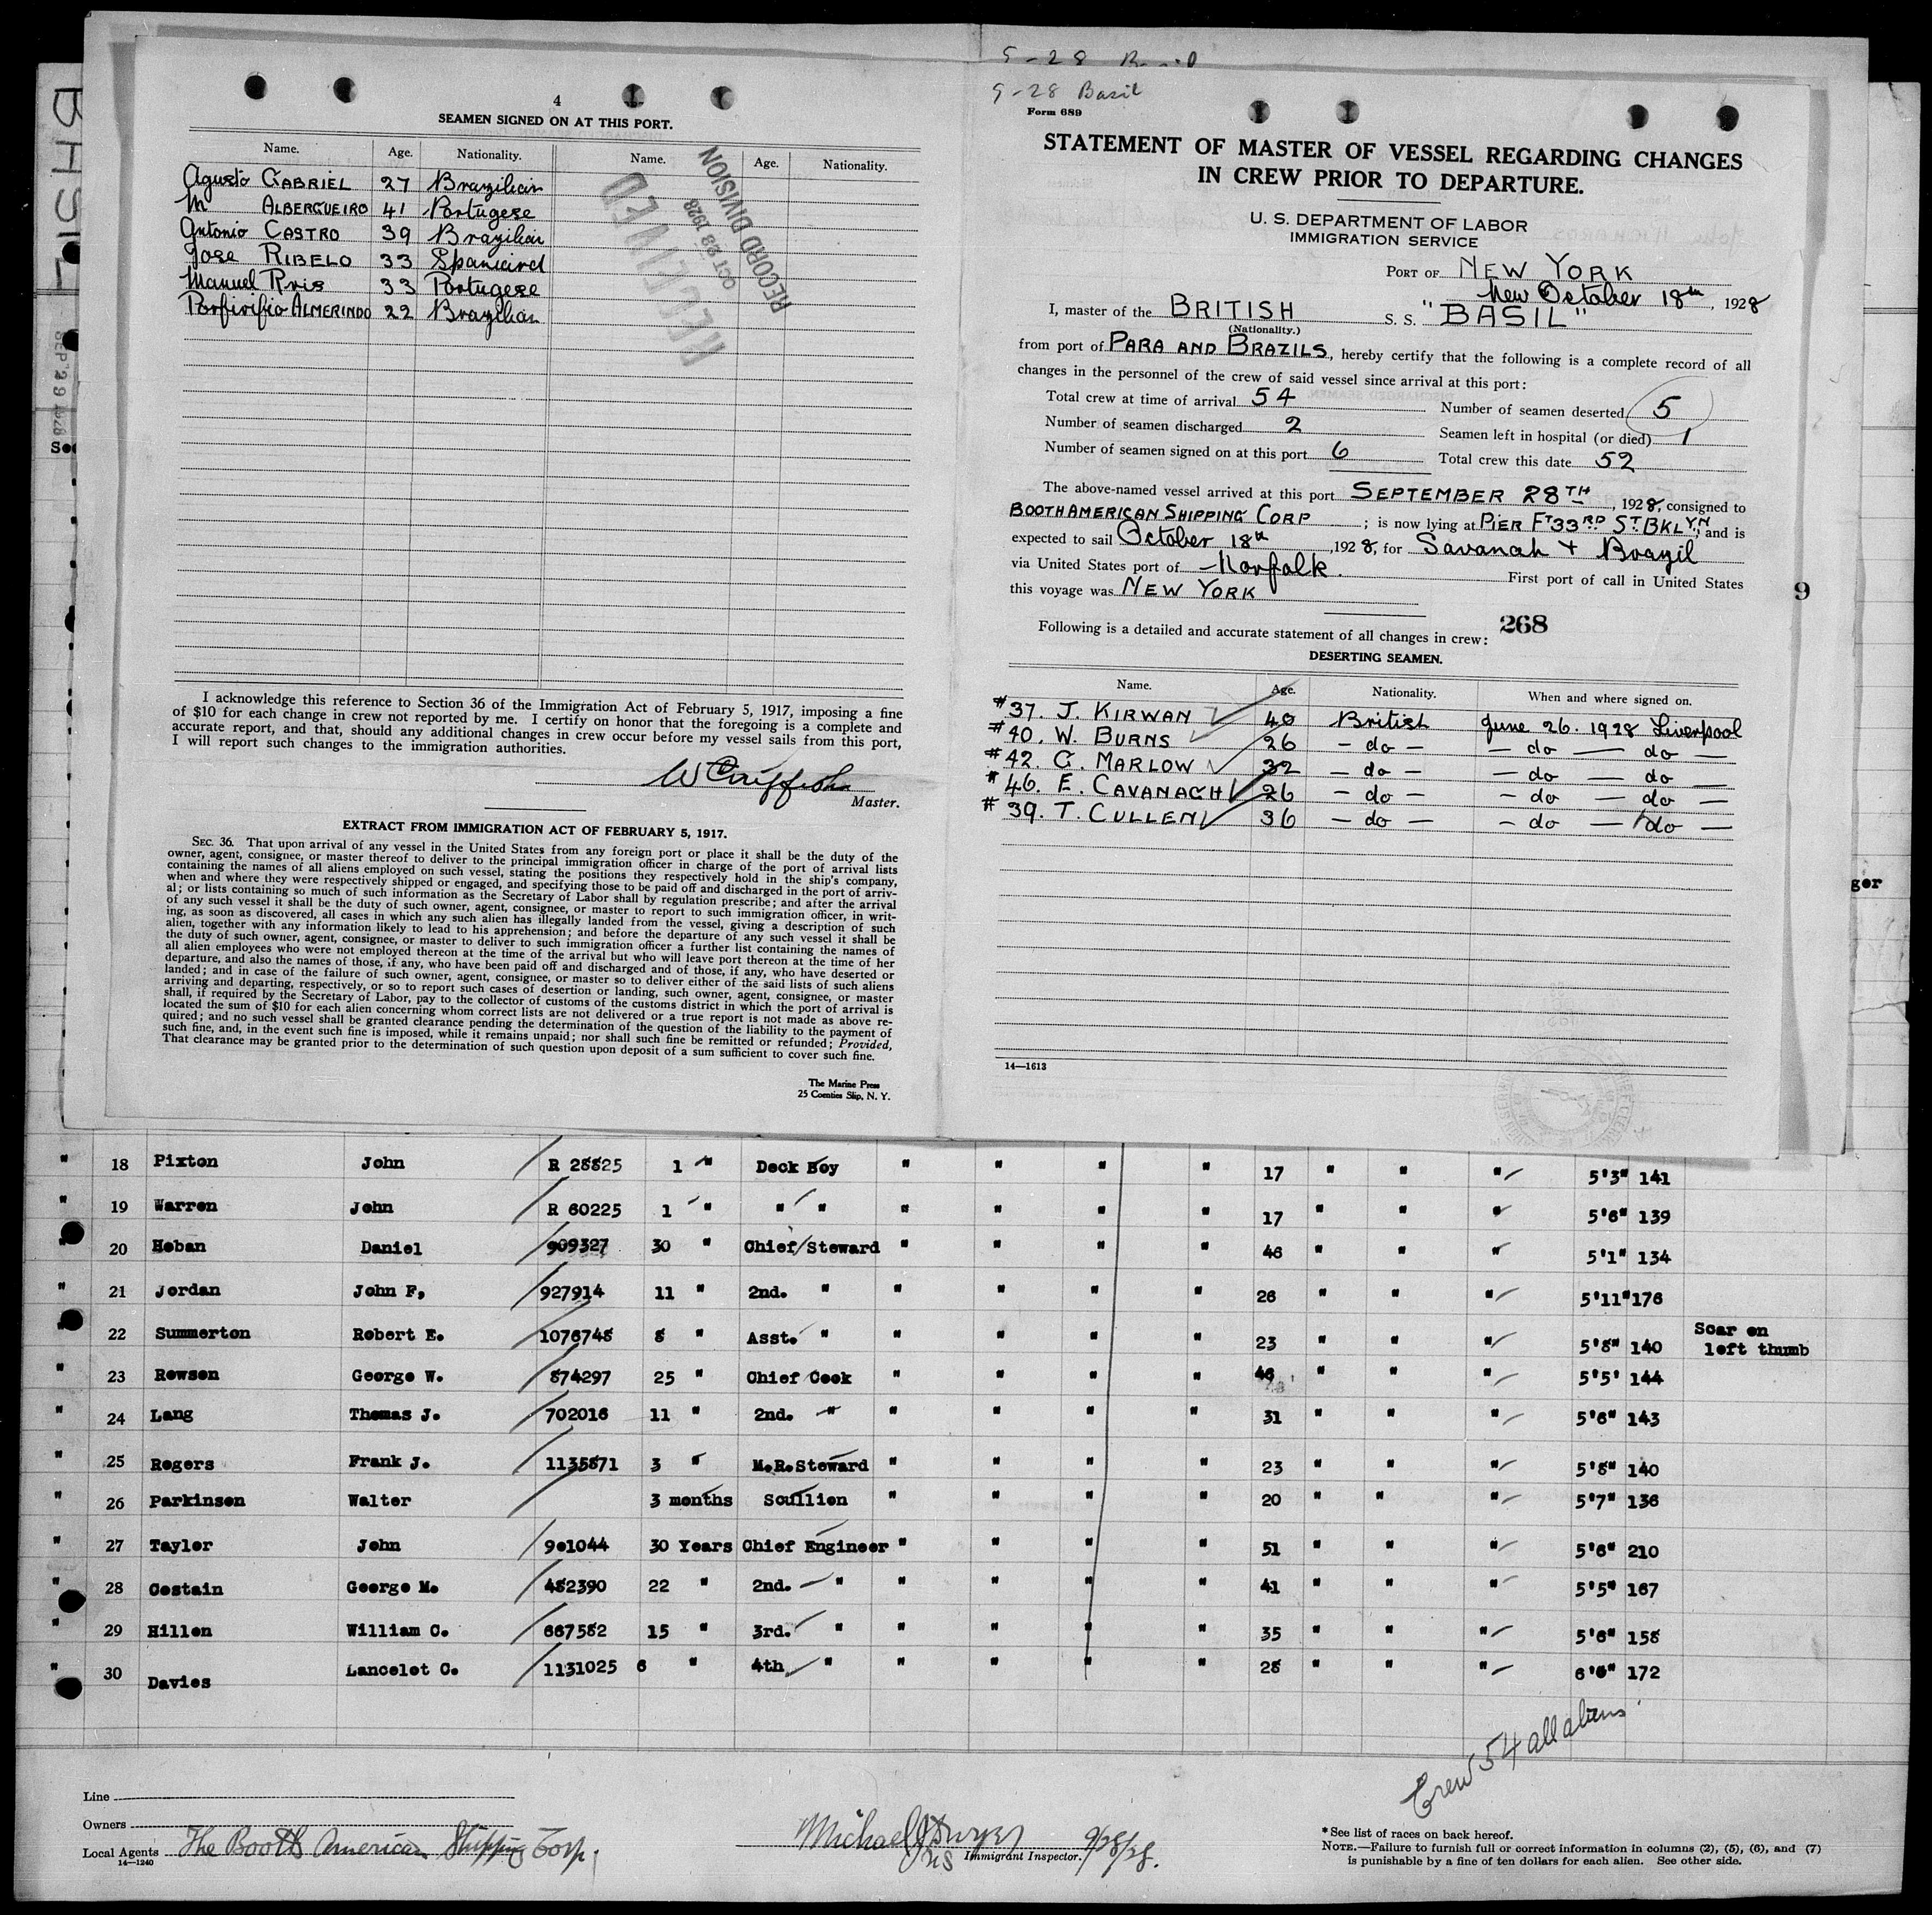 BASIL
SEP 29 1928
4
SEAMEN SIGNED ON AT THIS PORT.
Name. Age. Nationality. Name. Age. Nationality.
Agusto GABRIEL 27 Brazilian
M ALBERGUEIRO 41 Portugese
Antonio CASTRO 39 Brazilian
Jose RIBELO 33 Spaniard
Manuel 33 Portugese
Porfirifio ALMERINDO 22 Brazilian
RECEIVED
OCT 23 1928
RECORD DIVISION
I acknowledge this reference to Section 36 of the Immigration Act of February 5, 1917, imposing a fine
of $10 for each change in crew not reported by me. I certify on honor that the foregoing is a complete and
accurate report, and that, should any additional changes in crew occur before my vessel sails from this port,
I will report such changes to the immigration authorities.
W Griffiths
Master.
EXTRACT FROM IMMIGRATION ACT OF FEBRUARY 5, 1917.
SEC. 36. That upon arrival of any vessel in the United States from any foreign port or place it shall be the duty of the
owner, agent, consignee, or master thereof to deliver to the principal immigration officer in charge of the port of arrival lists
containing the names of all aliens employed on such vessel, stating the positions they respectively hold in the ship's company,
when and where they were respectively shipped or engaged, and specifying those to be paid off and discharged in the port of arriv-
al; or lists containing so much of such information as the Secretary of Labor shall by regulation prescribe; and after the arrival
of any such vessel it shall be the duty of such owner, agent, consignee, or master to report to such immigration officer, in writ-
ing, as soon as discovered, all cases in which any such alien has illegally landed from the vessel, giving a description of such
alien, together with any information likely to lead to his apprehension; and before the departure of any such vessel it shall be
the duty of such owner, agent, consignee, or master to deliver to such immigration officer a further list containing the names of
all alien employees who were not employed thereon at the time of the arrival but who will leave port thereon at the time of her
departure, and also the names of those, if any, who have been paid off and discharged and of those, if any, who have deserted or
landed; and in case of the failure of such owner, agent, consignee, or master so to deliver either of the said lists of such aliens
arriving and departing, respectively, or so to report such cases of desertion or landing, such owner, agent, consignee, or master
shall, if required by the Secretary of Labor, pay to the collector of customs of the customs district in which the port of arrival is
located the sum of $10 for each alien concerning whom correct lists are not delivered or a true report is not made as above re-
quired; and no such vessel shall be granted clearance pending the determination of the question of the liability to the payment of
such fine, and, in the event such fine is imposed, while it remains unpaid; nor shall such fine be remitted or refunded; Provided,
That clearance may be granted prior to the determination of such question upon deposit of a sum sufficient to cover such fine.
The Marine Press
25 Coenties Slip, N. Y.
9-28 Basil
Form 689
STATEMENT OF MASTER OF VESSEL REGARDING CHANGES
IN CREW PRIOR TO DEPARTURE.
U. S. DEPARTMENT OF LABOR
IMMIGRATION SERVICE
PORT OF NEW YORK
New October 18th, 1928
I, master of the BRITISH S. S. "BASIL"
(Nationality.)
from port of PARA AND BRAZILS, hereby certify that the following is a complete record of all
changes in the personnel of the crew of said vessel since arrival at this port:
Total crew at time of arrival 54 Number of seamen deserted 5
Number of seamen discharged 2 Seamen left in hospital (or died) 1
Number of seamen signed on at this port 6 Total crew this date 52
The above-named vessel arrived at this port SEPTEMBER 28TH, 1928, consigned to
BOOTH AMERICAN SHIPPING CORP; is now lying at PIER FT 33RD ST. BKLYN, and is
expected to sail October 18th, 1928, for Savanah + Brazil
via United States port of Norfolk. First port of call in United States
this voyage was NEW YORK
268
9
Following is a detailed and accurate statement of all changes in crew:
DESERTING SEAMEN.
Name. Age. Nationality. When and where signed on.
#37. J. KIRWAN 40 British June 26. 1928 Liverpool
#40. W. BURNS 26 - do - - do - do -
#42. G. MARLOW 32 - do - - do - do -
#46. E. CAVANAGH 26 - do - - do - do -
#39. T. CULLEN 36 - do - - do - do -
14—1613
ger
" 18 Pixton John R 28825 1 " Deck Boy " " " " 17 " " " 5'3" 141
" 19 Warren John R 60225 1 " " " " " " " 17 " " " 5'6" 139
20 Hoban Daniel 909327 30 " Chief Steward " " " " 46 " " " 5'1" 134
" 21 Jordan John F. 927914 11 " 2nd. " " " " " 26 " " " 5'11" 176
22 Summerton Robert E. 1076748 8 " Asst. " " " " " 23 " " " 5'8" 140 Scar on left thumb
" 23 Rowson George W. 874297 25 " Chief Cook " " " " 46 " " " 5'5' 144
" 24 Lang Thomas J. 702016 11 " 2nd. " " " " " 31 " " " 5'6" 143
" 25 Rogers Frank J. 1135871 3 " M.R.Steward " " " " 23 " " " 5'8" 140
" 26 Parkinson Walter 3 months Scullion " " " " 20 " " " 5'7" 136
" 27 Taylor John 901044 30 Years Chief Engineer " " " " 51 " " " 5'6" 210
" 28 Costain George M. 482390 22 " 2nd. " " " " " 41 " " " 5'5" 167
" 29 Hillen William C. 667582 15 " 3rd. " " " " " 35 " " " 5'6" 158
" 30 Davies Lancelot C. 1131025 6 " 4th " " " " " 28 " " " 6'0" 172
Crew 54 all aliens
Line
Owners
Local Agents The Booth American Shipping Corp.
14—1240
Michael J Dwyer Immigrant Inspector. 9/28/28.
*See list of races on back hereof.
NOTE.—Failure to furnish full or correct information in columns (2), (5), (6), and (7)
is punishable by a fine of ten dollars for each alien. See other side.